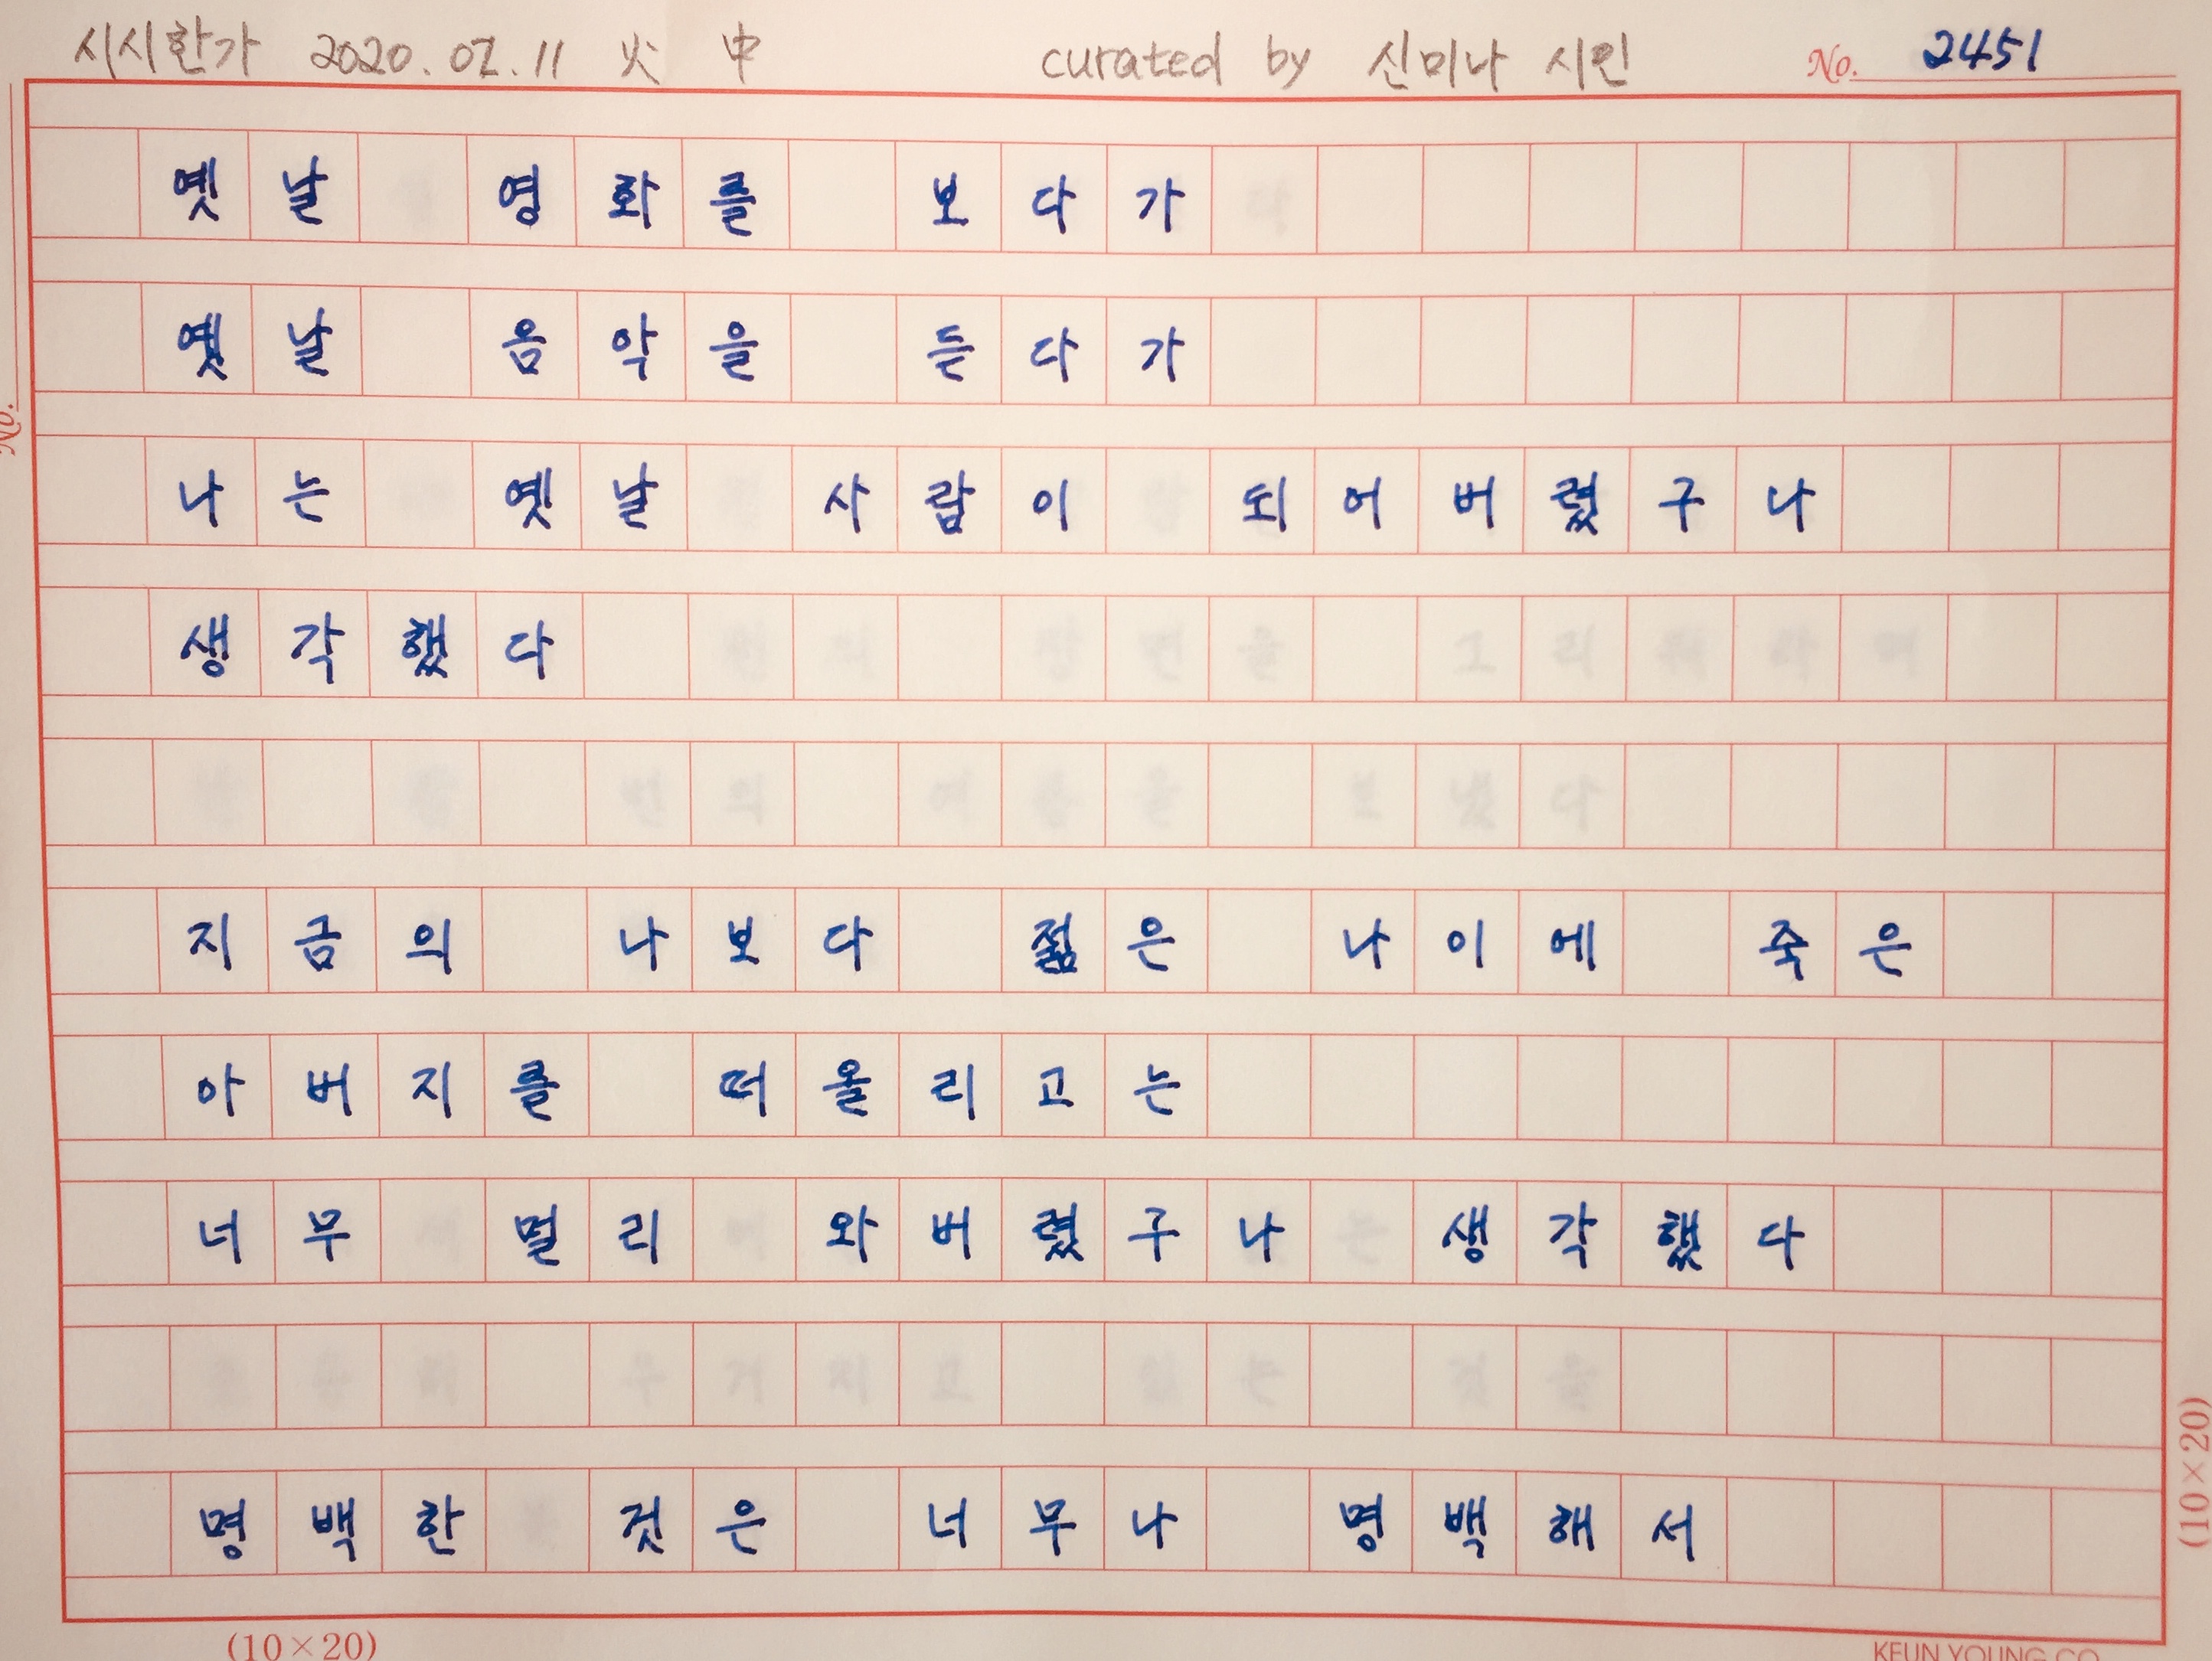 시시한가 2020.02.11 火 中 curated by 신미나 시인 No. 2451
옛날 영화를 보다가
옛날 음악을 듣다가
나는 옛날 사람이 되어버렸구나
No.
생각했다
지금의 나보다 젊은 나이에 죽은
아버지를 떠올리고는
너무 멀리 와버렸구나 생각했다
명백한 것은 너무나 명백해서
(10×20)
(10×20)
KEUN YOUNG CO.